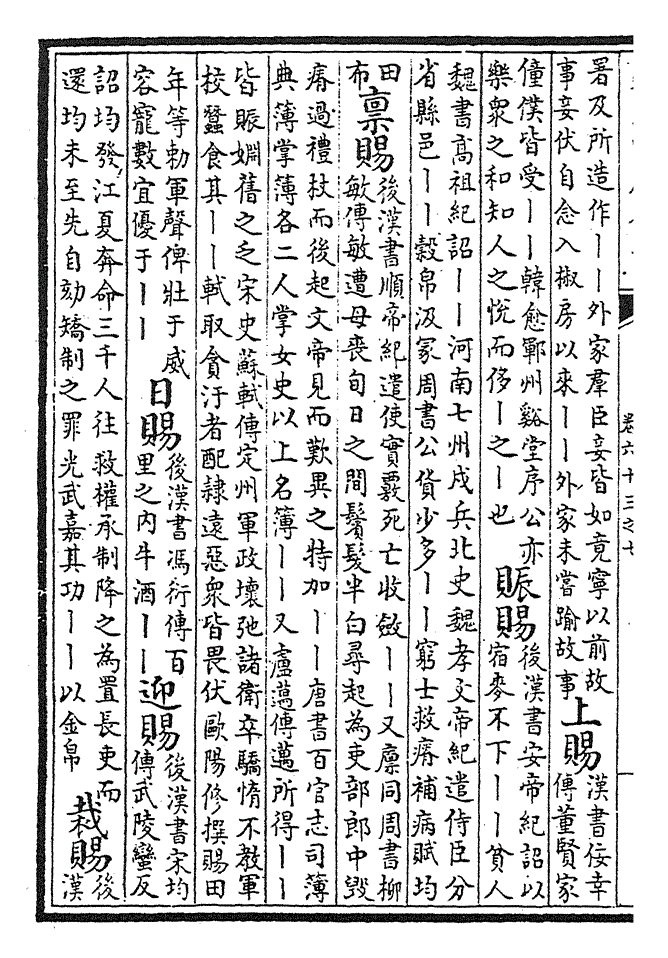 署及所造作丨丨外家羣臣妾皆如竟寧以前故
事妾伏自念入椒房以來丨丨外家未嘗踰故事
上賜
漢書佞幸
傳董賢家
僮僕皆受丨丨韓愈鄆州谿堂序公亦
樂衆之和知人之悅而侈丨之丨也
賑賜
後漢書安帝紀詔以
宿麥不下丨丨貧人
魏書高祖紀詔丨丨河南七州戍兵北史魏孝文帝紀遣侍臣分
省縣邑丨丨穀帛汲冢周書公貨少多丨丨窮士救瘠補病賦均
田
布
稟賜
後漢書順帝紀遣使實覈死亡收斂丨丨又廩同周書柳
敏傳敏遭母喪旬日之間鬢髮半白尋起為吏部郎中毀
瘠過禮杖而後起文帝見而歎異之特加丨丨唐書百官志司簿
典簿掌簿各二人掌女史以上名簿丨丨又盧邁傳邁所得丨丨
皆賑婣舊之乏宋史蘇軾傳定州軍政壞弛諸衛卒驕惰不教軍
校蠶食其丨丨軾取貪汙者配隷遠惡衆皆畏伏歐陽修撰賜田
年等勅軍聲俾壯于威
容寵數宜優于丨丨
日賜
後漢書馮衍傳百
里之内牛酒丨丨
迎賜
後漢書宋均
傳武陵蠻反
詔均發江夏奔命三千人往救權承制降之為置長吏而
還均未至先自劾矯制之罪光武嘉其功丨丨以金帛
裁賜
後
漢
卷六十三之七